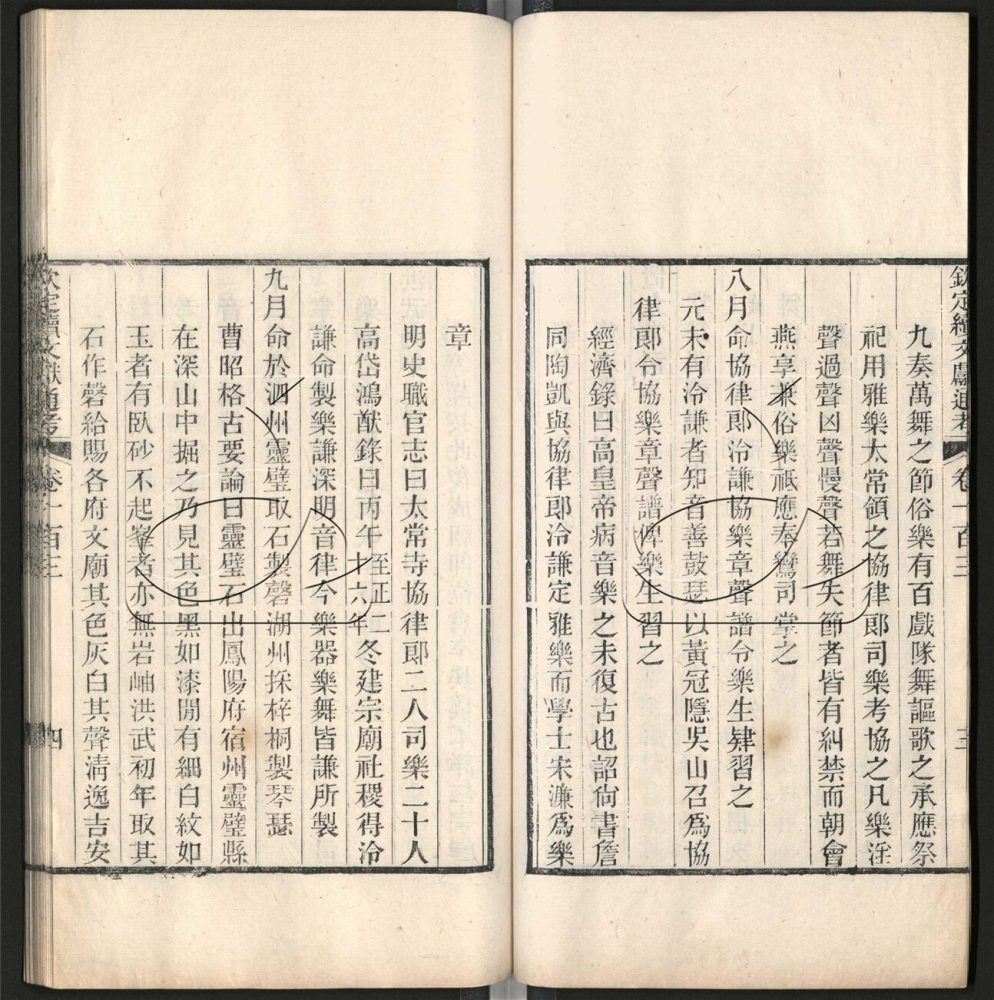 欽定續文獻通考 卷一百三 三
九奏萬舞之節俗樂有百戲隊舞謳歌之承應祭
祀用雅樂太常領之協律郞司樂考協之凡樂淫
聲過聲凶聲慢聲若舞失節者皆有糾禁而朝會
燕享兼俗樂祇應奉鑾司掌之
八月命協律郞泠謙協樂章聲譜令樂生肄習之
元末有泠謙者知音善鼓瑟以黃冠隱吳山召爲協
律郞令協樂章聲譜俾樂生習之
經濟錄曰高皇帝病音樂之未復古也詔尙書詹
同陶凱與協律郞泠謙定雅樂而學士宋濂爲樂
章
明史職官志曰太常寺協律郞二人司樂二十人
高岱鴻猷錄曰丙午至正二十六年冬建宗廟社稷得泠
謙命製樂謙深明音律今樂器樂舞皆謙所製
九月命於泗州靈璧取石製磬湖州採梓桐製琴瑟
曹昭格古要論曰靈璧石出鳳陽府宿州靈璧縣
在深山中掘之乃見其色黑如漆閒有細白紋如
玉者有臥砂不起峯者亦無岩岫洪武初年取其
石作磬給賜各府文廟其色灰白其聲淸逸吉安
欽定續文獻通考 卷一百三 四